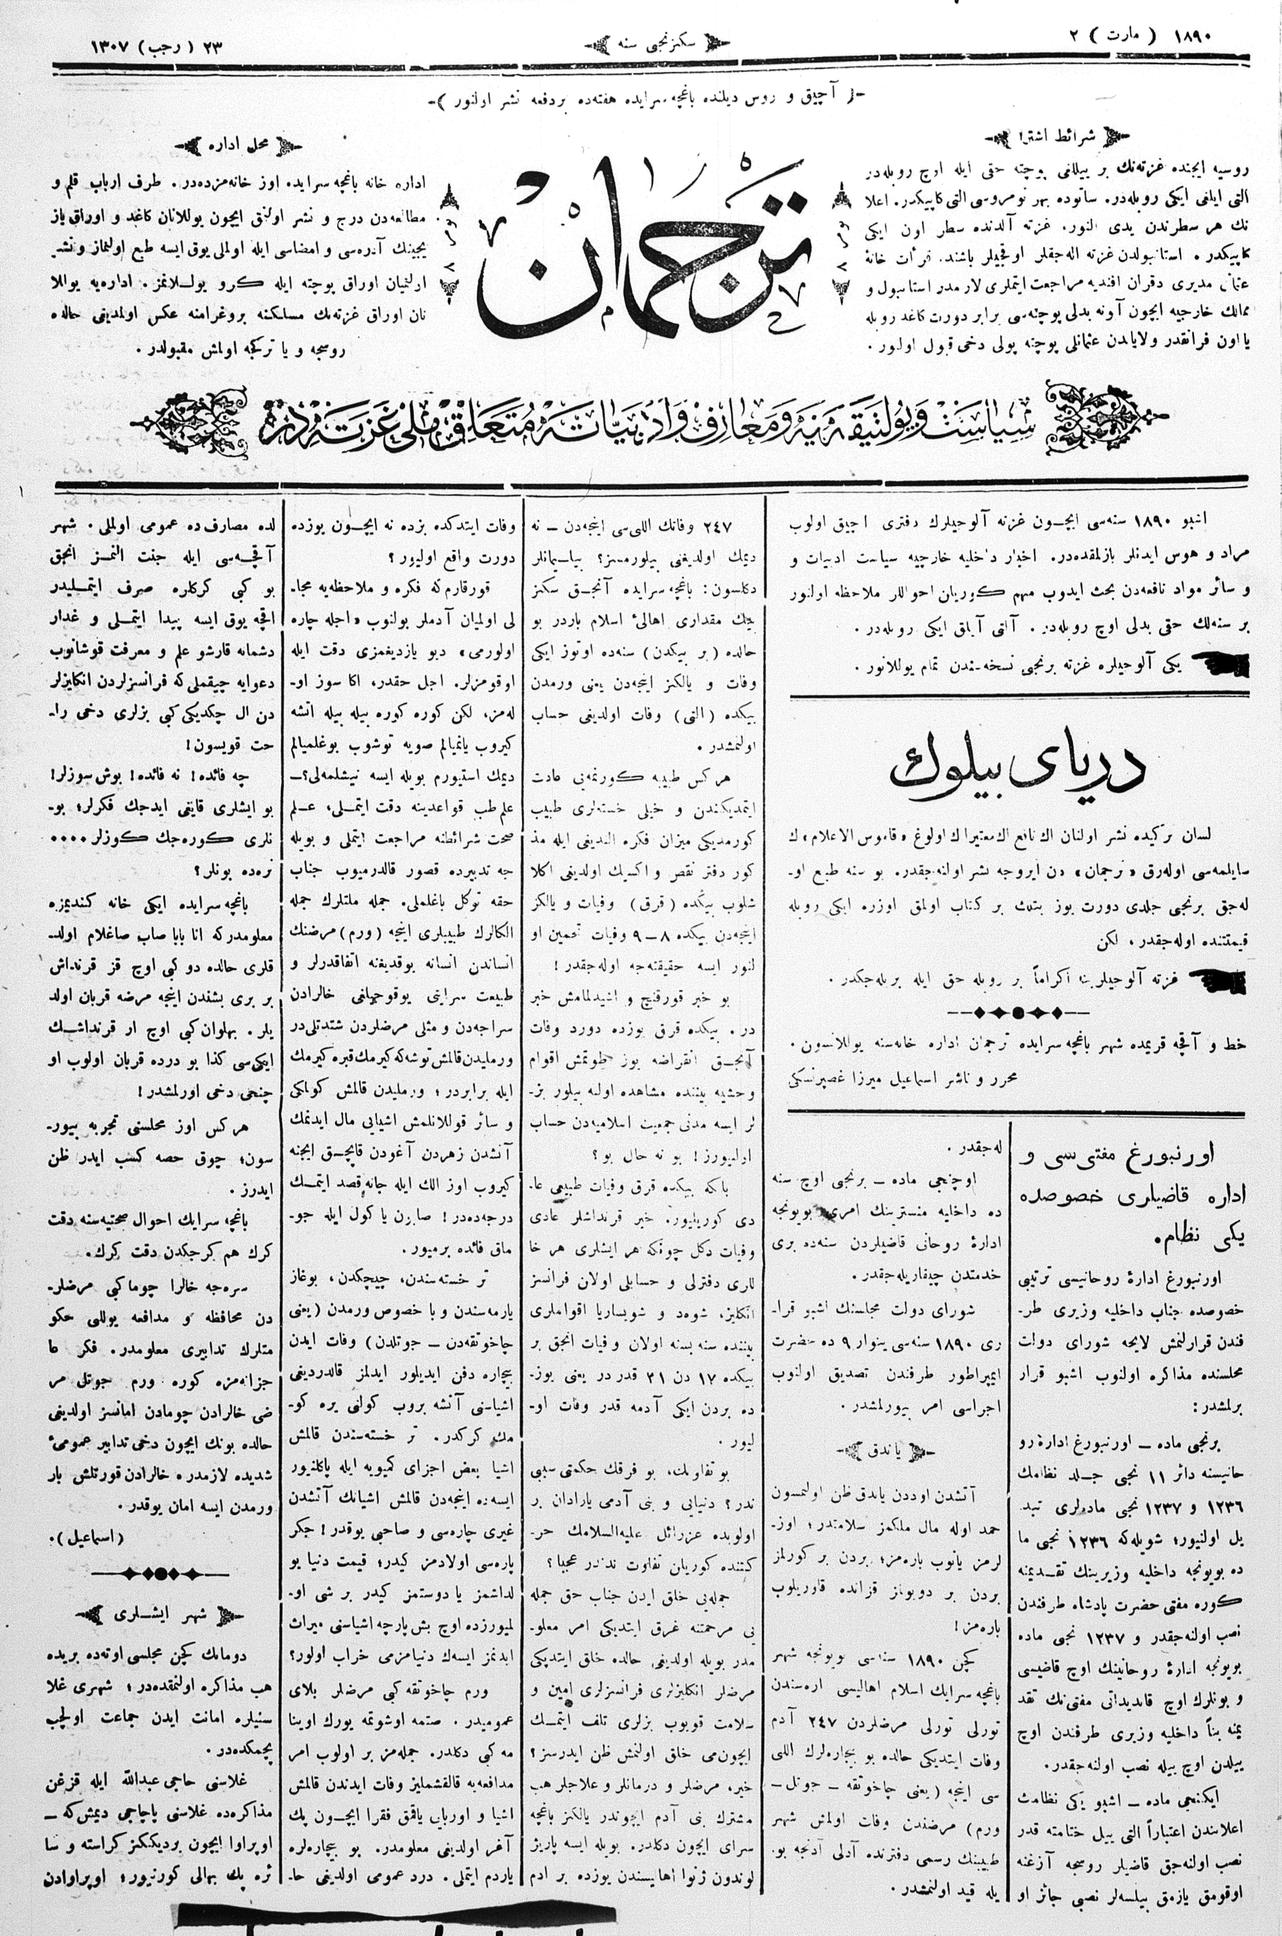 ١٨٩٠ ( مارت ) ٢
سكزنجی سنه
٢٣ ( رجب ) ١٣٠٧
آچيق و روس ديلنده باغچه‌سرايده هفته‌ده بردفعه نشر اولنور
شرائط اشترا
روسيه ايچنده غزته‌نك بر ييللغی پوچته حقی ايله اوچ روبله‌در
التی ايلغی ايكی روبله‌در. ساتوده بهر نومروسی التی كاپيكدر. اعلا
نك هر سطرندن يدی النور. غزته آلدنده سطر اون ايكی
محل اداره
اداره خانه باغچه سرايده اوز خانه‌مزده‌در. طرف ارباب قلم و
مطالعه‌دن درج و نشر اولنق ايچون يوللانان كاغد و اوراق ياز
يجينك آدره‌سی و امضاسی ايله اولملی يوق ايسه طبع اولنماز و نشر
اولنيان اوراق پوچته ايله كرو يوللانمز. اداره‌يه يوللا
نان اوراق غزته‌نك مسلكنه پروغرامنه عكس اولمديغی حالده
روسجه و يا تركجه اولمش مقبولدر.
ترجمان
سياست و پوليتيقه‌يه و معارف و ادبياته متعلق ملی غزته‌در
اشبو ١٨٩٠ سنه‌سی ايچون غزته آلوجيلرك دفتری آچيق اولوب
مراد و هوس ايدنلر يازلمقده‌در. اخبار داخليه خارجيه سياست ادبيات و
و سائر مواد نافعه‌دن بحث ايدوب مهم كوريان احواللر ملاحظه اولنور
بر سنه‌لك حقی بدلی اوچ روبله‌در. آلتی آيلق ايكی روبله‌در.
يكی آلوجيلره غزته برنجی نسخه‌سندن تمام يوللانور.
دريای بيلوك
لسان تركيده نشر اولنان اك نافع اك معتبراك اولوغ «قاموس الاعلام» ك
سايلمه‌سی اوله‌رق «ترجمان» دن آيروجه نشر اولنه‌جقدر. بو سنه طبع او-
له‌جق برنجی جلدی دورت يوز بتلك بر كتاب اولمق اوزره ايكی روبله
قيمتنده اوله‌جقدر، لكن
غزته آلوجيلرينه اكراماً بر روبله حق ايله بريله‌جكدر.
خط و آقچه قريمده شهر باغچه سرايده ترجمان اداره خانه‌سنه يوللانسون.
محرر و ناشر اسماعيل ميرزا غصپرنسكی
اورنبورغ مفتی‌سی و
اداره قاضيلری خصوصده
يكی نظام.
اورنبورغ ادارهٔ روحانيسی ترتيبی
خصوصده جناب داخليه وزيری طر-
فندن قرارلنمش لايحه شورای دولت
مجلسنده مذاكره اولنوب اشبو قرار
برلمشدر:
برنجی ماده — اورنبورغ ادارهٔ رو
حانيسنه دائر ١١ نجی جلد نظامك
١٢٣٦ و ١٢٣٧ نجی ماده‌لری تبد
يل اولنيور؛ شويله‌كه ١٢٣٦ نجی ما
ده بويونجه داخليه وزيرينك تقديمنه
كوره مفتی حضرت پادشاه طرفندن
نصب اولنه‌جقدر و ١٢٣٧ نجی ماده
بويونجه ادارهٔ روحانينك اوچ قاضيسی
و بونلرك اوچ قانديداتی مفتی‌نك تقد
يمنه بناً داخليه وزيری طرفندن اوچ
ييلدن اوچ ييله نصب اولنه‌جقدر.
ايكنجی ماده — اشبو يكی نظامك
اعلانندن اعتباراً التی ييل ختامنه قدر
نصب اولنه‌جق قاضيلر روسجه آزغنه
اوقومق يازمق بيلسه‌لر نصبی جائز او
له‌جقدر.
اوچنجی ماده — برنجی اوچ سنه
ده داخليه منسترينك امری بويونجه
ادارهٔ روحانی قاضيلردن سنه‌ده بری
خدمتدن چيقاريله‌جقدر.
شورای دولت مجلسنك اشبو قرا-
ری ١٨٩٠ سنه‌سی ينوار ٩ ده حضرت
ايمپراطور طرفندن تصديق اولنوب
اجراسی امر بيورلمشدر.
ياندق
آتشدن اوددن ياندق ظن اولنمسون
حمد اوله مال ملكمز سلامتدر؛ اوز-
لرمز يانوب باره‌مز؛ بردن بر كورلمز
بردن بر دويولمز قزانده قاوريلوب
باره‌مز!
كچن ١٨٩٠ سنه‌سی بويونجه شهر
باغچه سرايك اسلام اهاليسی اره‌سندن
تورلی تورلی مرضلردن ٢٤٧ آدم
وفات ايتديكی حالده بو بيچاره‌لرك اللی
سی اينجه (يعنی چاخوتقه — جوتل —
ورم) مرضندن وفات اولمش شهر
طبيبنك رسمی دفترنده آدلی آدنجه بو-
يله قيد اولنمشدر.
٢٤٧ وفاتك اللی‌سی اينجه‌دن — نه
ديمك اولديغی بيلورمسز؟ بيلميانلر
دكلسون: باغچه سرايده آنجق سكز
بيك مقداری اهالیٔ اسلام باردر بو
حالده (بر بيكدن) سنه‌ده اوتوز ايكی
وفات و يالكز اينجه‌دن يعنی ورمدن
بيكده (التی) وفات اولديغی حساب
اولنمشدر.
هركس طبيبه كورنمه‌يی عادت
ايتمديكندن و خيلی خسته‌لری طبيب
كورمديكی ميزان فكره النديغی ايله مذ
كور دفتر نقص و اكسيك اولديغی اكلا
شلوب بيكده (قرق) وفيات و يالكز
اينجه‌دن بيكده ٨—٩ وفيات تخمين او
لنور ايسه حقيقتجه اوله‌جقدر!
بو خبر قورقنچ و اشيدلمامش خبر
در. بيكده قرق يوزده دورد وفات
آنجق انقراضه يوز طوتمش اقوام
وحشيه بيننده مشاهده اولنه بيلور بز-
لر ايسه مدنی جمعيت اسلاميه‌دن حساب
اولنيورز! بو نه حال بو؟
باكه بيكده قرق وفيات طبيعی عا-
دی كورينيور. خير قرنداشلر عادی
وفيات دكل چونكه هر ايشلری هر خا
للری دفترلی و حسابلی اولان فرانسز
انكليز، شوه‌د و شويساريا اقواملری
بيننده سنه بسنه اولان وفيات انجق بر
بيكده ١٧ دن ٢١ قدر در يعنی يوز-
ده بردن ايكی آدمه قدر وفات او-
ليور.
بو تفاوتك، بو فرقك حكمتی سببی
ندر؟ دنيايی و بنی آدمی يارادان بر
اولوبده عزرائل عليه‌السلامك حر-
كتنده كوريان تفاوت ندندر عجبا؟
جمله‌يی خلق ايدن جناب حق جمله
يی مرحمتنه غرق ايتديكی امر معلو-
مدر بويله اولديغی حالده خلق ايتديكی
مرضلر انكليزلری فرانسزلری امين و
سلامت قويوب بزلری تلف ايتمك
ايچون‌می خلق اولنمش ظن ايدرسز؟
خير، مرضلر و درمانلر و علاجلر هب
مشترك بنی آدم ايچوندر يالكز باغچه
سرای ايچون دكلدر. بويله ايسه پاريژ
لوندون ژنوا اهاليسندن يوزده بر ادم
وفات ايتدكده بزده نه ايچون يوزده
دورت واقع اولنيور؟
قورقارم‌كه فكره و ملاحظه‌يه مجا-
لی اولميان آدملر بولنوب «اجله چاره
اولورمی» ديو يازديغمزی دقت ايله
اوقومزلر. اجل حقدر، اكا سوز او-
له‌مز، لكن كوره كوره بيله بيله اتشه
كيروب يانميالم صويه توشوب بوغلميالم
ديمك استيورم بويله ايسه نيشلمه‌لی؟—
علم طب قواعدينه دقت ايتملی، علم
صحت شرائطنه مراجعت ايتملی و بويله
جه تدبيرده قصور قالدرميوب جناب
حقه توكل باغلملی. جمله ملتلرك جمله
الكالرك طبيبلری اينجه (ورم) مرضنك
انساندن انسانه يوقديغنه اتفاقدرلر و
طبيعت سراينی يوقوجيلغی خالرادن
سراجه‌دن و مثلی مرضلردن شدتلی‌در
ورملیدن قالمش توشه‌كه كيرمك قبره كيرمك
ايله برابردر؛ ورمليدن قالمش كوملكی
و سائر قوللانلمش اشيايی مال ايدنمك
آتشدن زهردن آغودن قاپجق ايچنه
كيروب اوز الك ايله جانه قصد ايتمك
درجه‌ده‌در! صابون يا كول ايله جو-
ماق فائده برميور.
تر خسته‌سندن، چيچكدن، بوغاز
يارمه‌سندن و با خصوص ورمدن (يعنی
چاخوتقه‌دن — جوتلدن) وفات ايدن
بيچاره دفن ايديلور ايدلمز قالدرديغی
اشياسنی آتشه بروب كولنی يره كو-
مك كركدر. تر خسته‌سندن قالمش
اشيا بعض اجزای كيميويه ايله پاكلنيور
ايسه‌ده اينجه‌دن قالمش اشيانك آتشدن
غيری چاره‌سی و صاحبی يوقدر! جكر
پاره‌سی اولادمز كيدر؛ قيمت دنيا يو
لداشمز يا دوستمز كيدر بر شی او-
لميورزده اوچ بش پارچه اشياسنی ميراث
ايدنمز ايسه‌ك دنيامزمی خراب اولور؟
ورم چاخوتقه كبی مرضلر بلای
عموميدر. صتمه اوشوتمه يورك اوينا
مه كبی دكلدر. جمله‌مز بر اولوب امر
مدافعه‌يه قالقشمليز وفات ايدندن قالمش
اشيا و اورباپی ياقمق فقرا ايچون پك
آغر اولديغی معلومدر. بو بيچاره‌لره
ياردم ايتملی. درد عمومی اولديغی حا-
لده مصارف ده عمومی اولملی. شهر
آقچه‌سی ايله جنت النمز انجق
بو كبی كركلره صرف ايتمليدر
اقچه يوق ايسه پيدا ايتملی و غدار
دشمانه قارشو علم و معرفت قوشانوب
دعوايه چيقملی‌كه فرانسزلردن انكليزلر
دن ال چكديكی كبی بزلری دخی را-
حت قويسون!
چه فائده! نه فائده! بوش سوزلر!
بو ايشلری قايغی ايدجك فكرلر؛ بو-
نلری كوره‌جك كوزلر ....
نره‌ده بونلر؟
باغچه سرايده ايكی خانه كنديمزه
معلومدركه انا بابا صاپ صاغلام اولد-
قلری حالده دو كبی اوچ قز قرنداش
بر بری پشندن اينجه مرضه قربان اولد
يلر. پهلوان كبی اوچ ار قرنداشك
ايكی‌سی كذا بو درده قربان اولوب او
چنجی دخی اورلمشدر!
هركس اوز محلسنی تجربه بيور-
سون؛ چوق حصه كسب ايدر ظن
ايدرز.
باغچه سرايك احوال صحتيه‌سنه دقت
كرك هم كرجكدن دقت كرك.
سره‌جه خالرا چوما كبی مرضلر-
دن محافظه و مدافعه يوللی حكو
متلرك تدابيری معلومدر. فكر عا
جزانه‌مزه كوره ورم جوتل مر
ضی خالرادن چومادن امانسز اولديغی
حالده بونك ايچون دخی تدابير عمومیٔ
شديده لازمدر. خالرادن قورتلش بار
ورمدن ايسه امان يوقدر.
(اسماعيل).
شهر ايشلری
دومانك كچن مجلسی اوته‌ده بريده
هب مذاكره اولنمقده‌در؛ شهری غلا
سنيلره امانت ايدن جماعت اولچب
پچمكده‌در.
غلاسنی حاجی عبدالله ايله قزغن
مذاكره‌ده غلاسنی پاچاجی ديمش‌كه —
اوپراوا ايچون برديككز كراسته و سا
ئره پك بهالی كورنيور؛ اوپراوادن